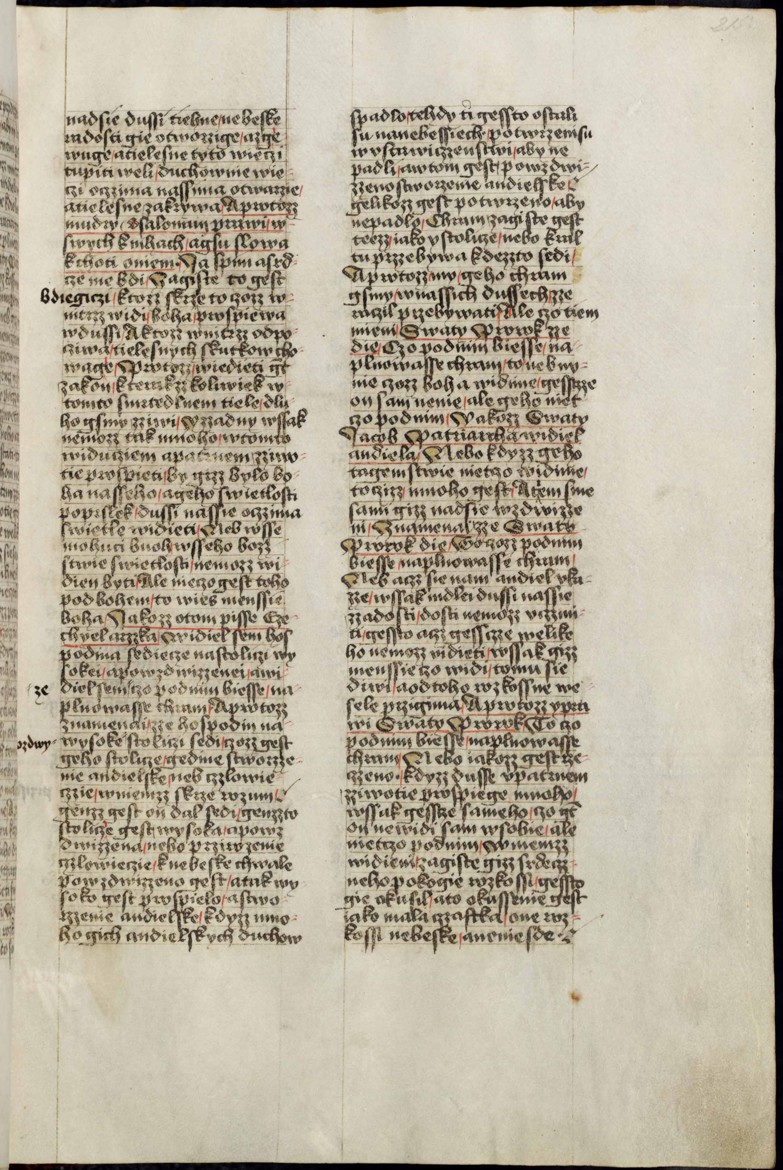 nadsie dussi tiehne / nebeske
radosti gie otworzige / az ge
wuge / a tielesne tyto wieczi
tupiti weli / duchownie wie-
czi oczima nassima otwarzie /
a tielesne zakrywa / A protoz
mudry Ssalomun prawi / w
swych knihach / a gsu slowa
k choti o niem / Ja spim a srd-
cze me bdi / Zagiste to gest
bdiegiczi / ktozz skrze to czozz w-
nitrz widi / boha / prospiewa
w dussi / A ktozz wnitrz odpo-
cziwa / tielesnych skutkow cho-
wage / Protozz / wiedieti gt
zakon / kterakzz koliwiek w-
tomto smrtedlnem tiele / dlu-
ho gsmy zziwi / Wzzadny wssak
nemozz tak mnoho / w tomto
widuziem a patrnem zziwo-
tie prospieti / by gizz bylo bo-
ha nasseho / a geho swietlosti
poprslek / dussi nassie oczima
swietle widieti / Neb wsse
mohuci buoh wsseho bozz
stwie swietlosti / nemozz wi-
dien byti / Ale nieczo gest toho
pod bohem / to wies menssie
boha / Jakozz o tom pisse Eze-
chyel azzka / Widiel sem hos
podina sediecze na stolici wy
sokei / a powzdwizzenei / a wi-
ze
diel sem / czo pod nim biesse / na-
plnowasse chram / A protozz
znamenai / ze hospodin na
wysoke stolici sedi / czozz gest
geho stolicze / gedine stworzze-
nie andielske / neb czlowie-
czie / w niemzz skrze rozum /
genzz gest on dal sedi / genzzto
stolicze gest wysoka / a powz
dwizzena / nebo przirozenie
czlowieczie / k nebeske chwale
powzdwizzeno gest / a tak wy
soko gest prospielo / a stwo-
rzzenie andielske / kdyzz mno-
ho gich andielskych duchow
spadlo / tehdy ti gessto ostali
su na nebessiech / potwrzeni su
w ustawiczzenstwi / aby ne
padli / a w tom gest / powzdwi-
zzeno stworzenie andielske /
gelikozz gest potwrzeno / aby
nepadlo / Chram zagiste gest
teezz / iako y stolicze / nebo kral
tu przzebywa kdezzto sedi /
A protozz my / geho chram
gsmy / w nassich dussech zze
raczil przebywati / Ale czo tiem
mieni Swaty Prorok zze
die / Czo pod nim biesse / na-
plnowasse chram / to neb ny-
nie czozz boha widime / gesstzze
on sam nenie / ale geho niet
czo pod nim / Jakozz Swaty
Jacob Patriarcha widiel
andiela / Nebo kdyzz geho
tagemstwie nietczo widime /
to czizz mnoho gest / A tem sme
sami gizz nadsie wzdwizze
ni / Znamenayzze Swaty
Prorok die / To czozz pod nim
biesse / naplnowasse chram /
Neb aczz sie nam andiel uka-
zze / wssak mdlei dussi nassie
zzadosti / dosti nemozz uczini-
ti / gessto aczz gesscze welike
ho nemozz widieti / wssak gizz
menssie czo widi / tomu sie
diwi / a od toho rozkossne we
sele przigima / A protozz y pra
wi Swaty Prorok / To czo
pod nim biesse / naplnowasse
chram / Nebo iakozz gest rze-
czzeno / kdyzz dusse w patrnem
zziwotie prospiege mnoho /
wssak gesstze sameho / czo gt
on newidi sam w sobie / ale
nietczo pod nim / w niemzz
widieni / zagiste gizz srdecz-
neho pokogie rozkossi / gessto
gie okusil / a to okussenie gest
iako mala czastka / one roz-
kossi nebeske / a nenie sde